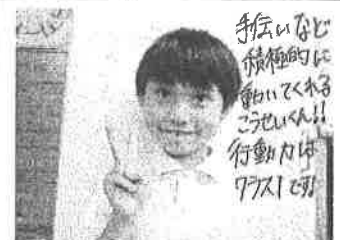 手伝いなど
積極的に
動いてくれる
こうせいくん!!
行動力は
クラス1です!